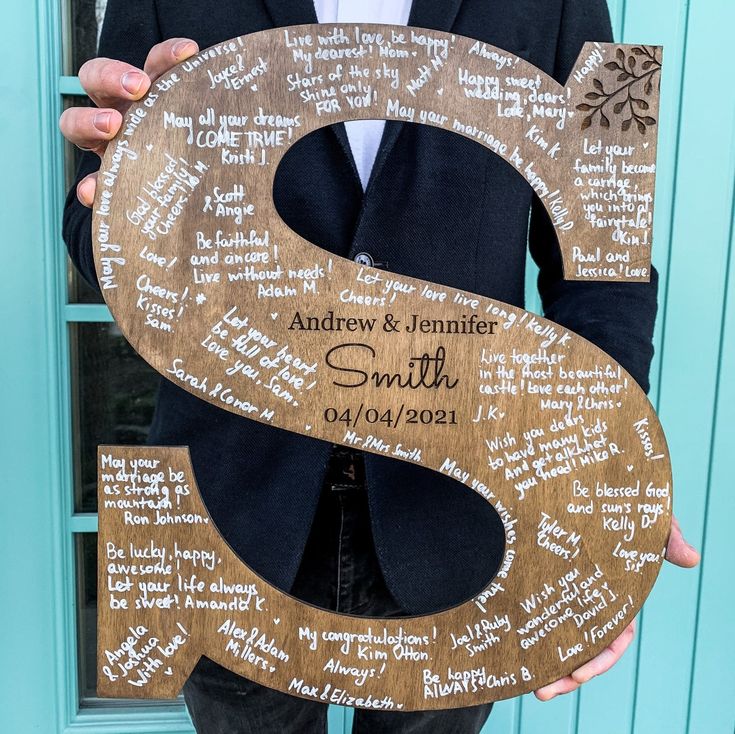 May your love always wide as the universe!
Jake &
Ernest
Live with love, be happy!
My dearest! Mom
Stars of the sky
shine only
FOR YOU!
Matt M.
Always!
Happy sweet
wedding, dears!
Love, Mary
Kim K.
Happy!
May all your dreams
COME TRUE!
Kristi J.
May your marriage be happy! Kelly D.
Let your
family become
a carriage,
which brings
you into a
fairytale!
Kim J.
Paul and
Jessica! Love.
God blessed
your family!
Cheers!
Scott
& Angie
Be faithful
and sincere!
Live without needs!
Adam M.
Love!
Cheers!
Kisses!
Sam.
Let your love live long! Kelly K.
Cheers!
Let your heart
be full of love!
Love you, Sam.
Sarah & Conor M.
Andrew & Jennifer
Smith
04/04/2021
Mr & Mrs Smith
Live together
in the most beautiful
castle! Love each other!
Mary & Chris
J.K
Wish you dears
to have many kids
And get all what
you need! Mike R.
Kisses!
May your wishes come true!
Be blessed God
and sun's rays!
Kelly D.
Tyler M.
Cheers!
Love you!
Sis
May your
marriage be
as strong as
mountain!
Ron Johnson.
Be lucky, happy,
awesome!
Let your life always
be sweet! Amanda K.
Angela
& Joshua
With love!
Alex & Adam
Millers
My congratulations!
Kim Otton.
Always!
Max & Elizabeth
Joel & Ruby
Smith
Be happy
ALWAYS! Chris B.
Wish you
wonderful and
awesome life
David J.
Love! Forever!